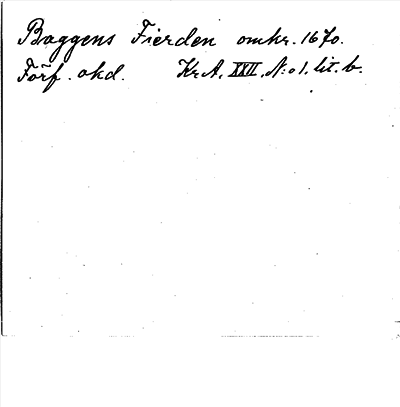 Baggens Fierden omkr. 1670.
Förf. okd. Kr. A. XXII, N:o 1. lit. b.